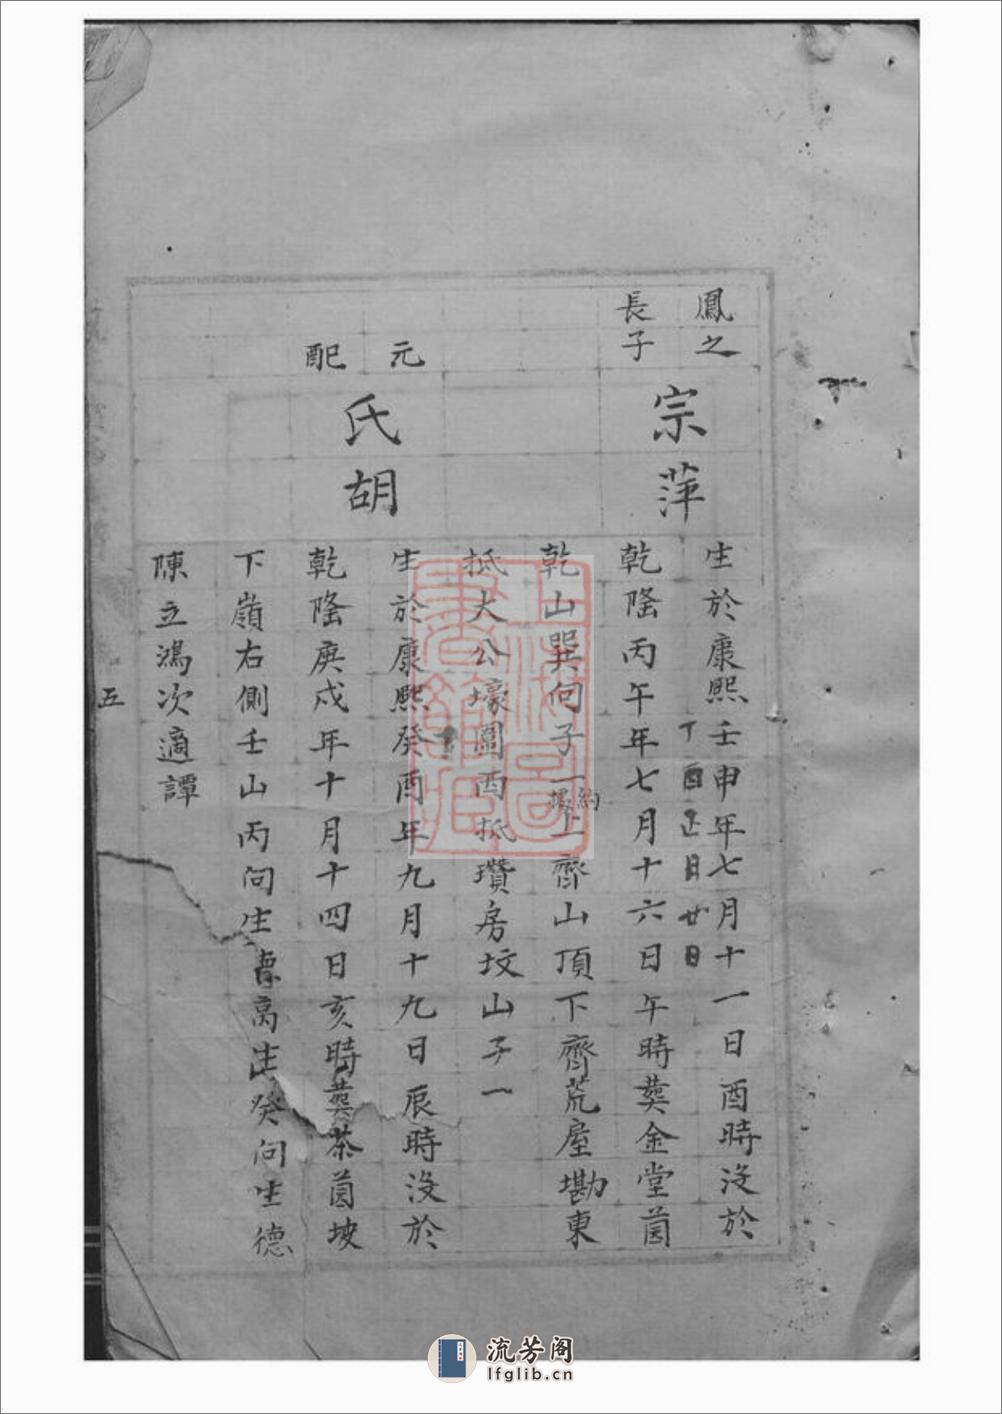 鳳之
長子
宗萍
生於康熙壬申年七月十一日酉時没於
丁酉正月廿日
乾隆丙午年七月十六日午時葬金堂茵
乾山巽向子一上齊山頂下齊荒屋墈東
抵大公壕圍西抵瓚房坟山子一
元
配
氏胡
生於康熙癸酉年九月十九日辰時没於
乾隆庚戍年十月十四日亥時葬茶茵坡
下嶺右側壬山丙向生 蒿 癸向生德
陳立鴻次適譚
五
上海圖書館藏
流芳阁
lfglib.cn